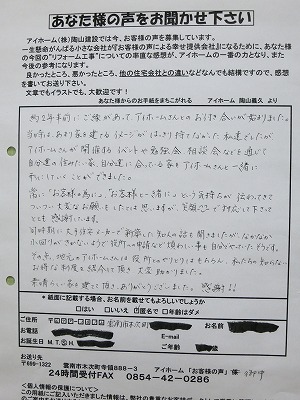 あなた様の声をお聞かせ下さい
アイホーム(株)陶山建設では今、お客様の声を募集しています。
一生懸命がんばる小さな会社が『お客様の声による幸せ提供会社』になるために、あなた様
の今回の"リフォーム工事"についての率直な感想が、アイホームの一番の力となり、また
今後の参考になります。
良かったところ、悪かったところ、他の住宅会社との違いなどなんでも結構ですので、感想
を書いてお送り下さい。
文章でもイラストでも、大歓迎です！
あなた様からのお手紙をまちこがれる アイホーム 陶山義久 より
約2年半前にご縁があって、アイホームさんとのお付き合いが始まりました。
当時は、あまり家を建てるイメージがはっきり持てなかった私達でしたが、
アイホームさんが開催するイベントや勉強会、相談会などを通じて
自分達の住みたい家、自分達に合っている家をアイホームさんと一緒に
していくことができました。
常に"お客様の為に"、"お客様と一緒に"という気持ちが伝わってきて
ついつい大変なお願いもしたとは思いますが、笑顔で対応して下さって
とても感謝しています。
同時期に大手住宅メーカーで新築した知人の話を聞きましたが、なかなか
小回りがきかないようで役所への申請など煩わしい事も自分でやったそうです。
その点、地元のアイホームさんは役所とのやりとりはもちろん、私たちの知らない
お得な制度も紹介して頂き大変助かりました。
素晴らしい家を建てて頂きありがとうございました。感謝!!
＊紙面に記載する場合、お名前を載せてもよろしいでしょうか
□はい □いいえ □匿名で □年齢はダメ
ご住所 雲南市木次町
お名前
お電話 E-mail
お誕生日 M.T.S.H. ご年齢 歳
お送り先
〒699-1322 雲南市木次町寺領888-3 アイホーム「お客様の声」係
24時間受付FAX 0854-42-0286
＜個人情報の保護について＞